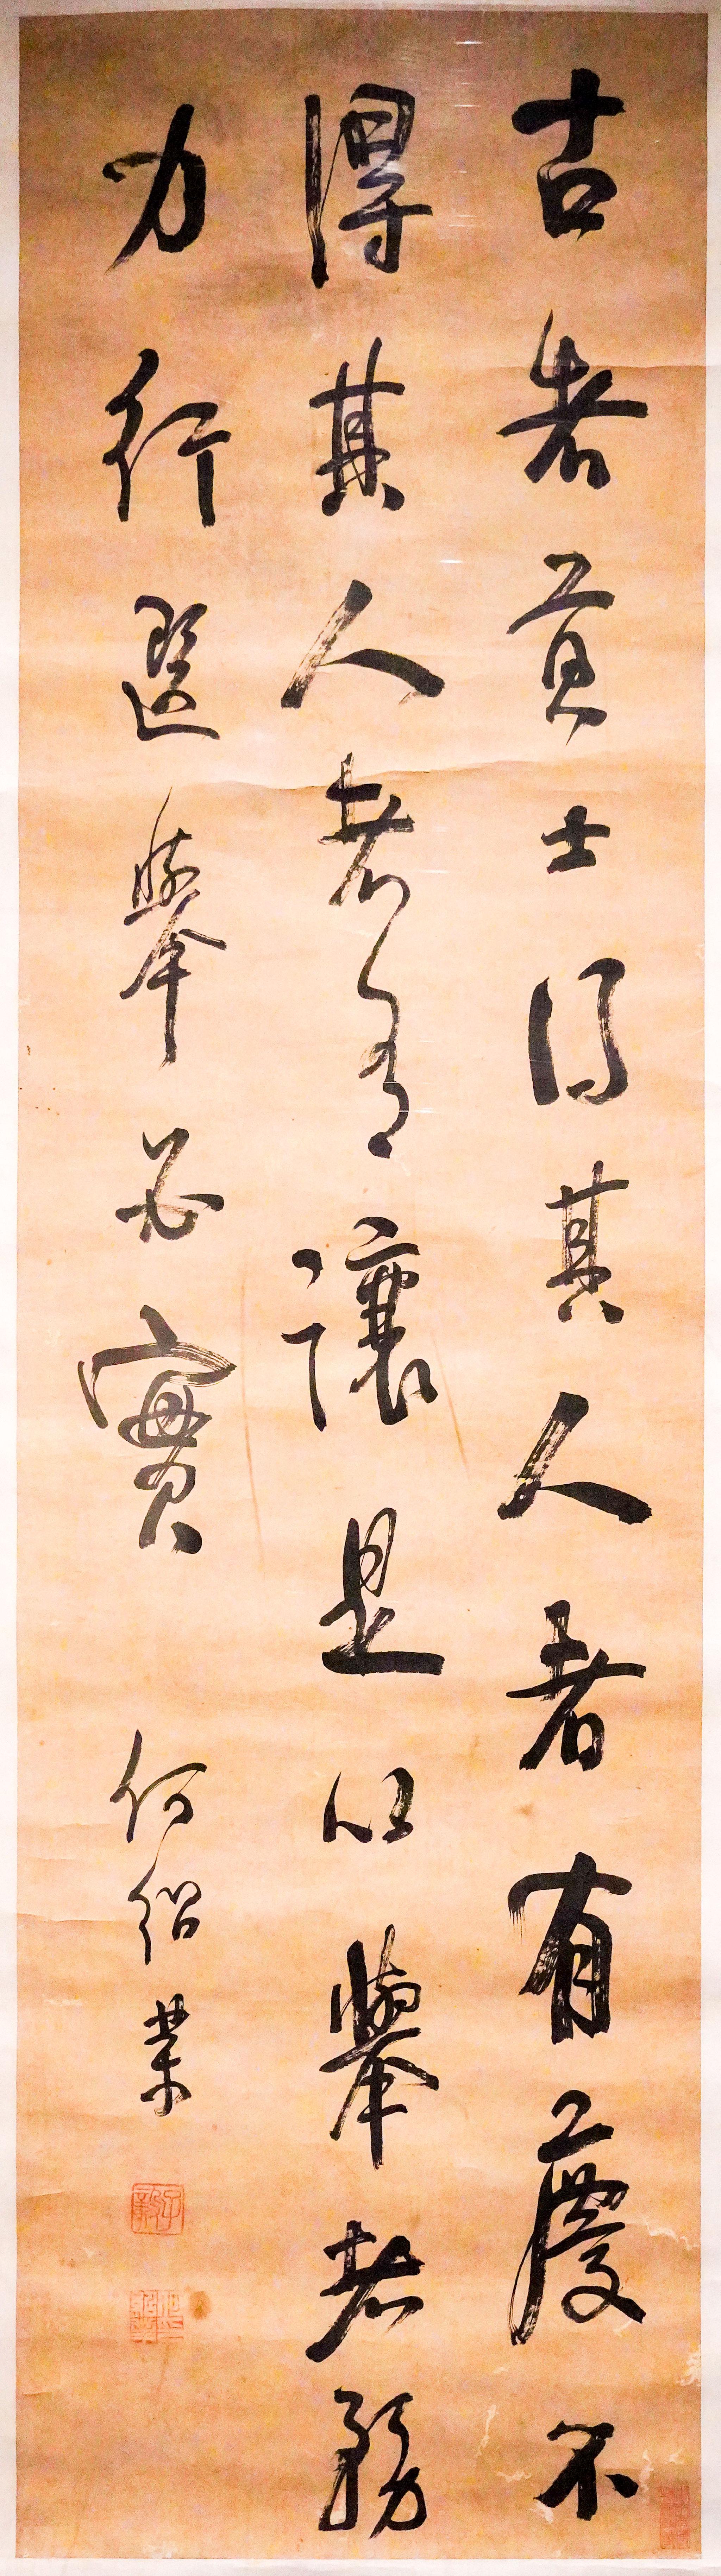 古者貢士得其人者有慶不
得其人者有讓是以舉者務
力行選舉必實
何紹業
子毅